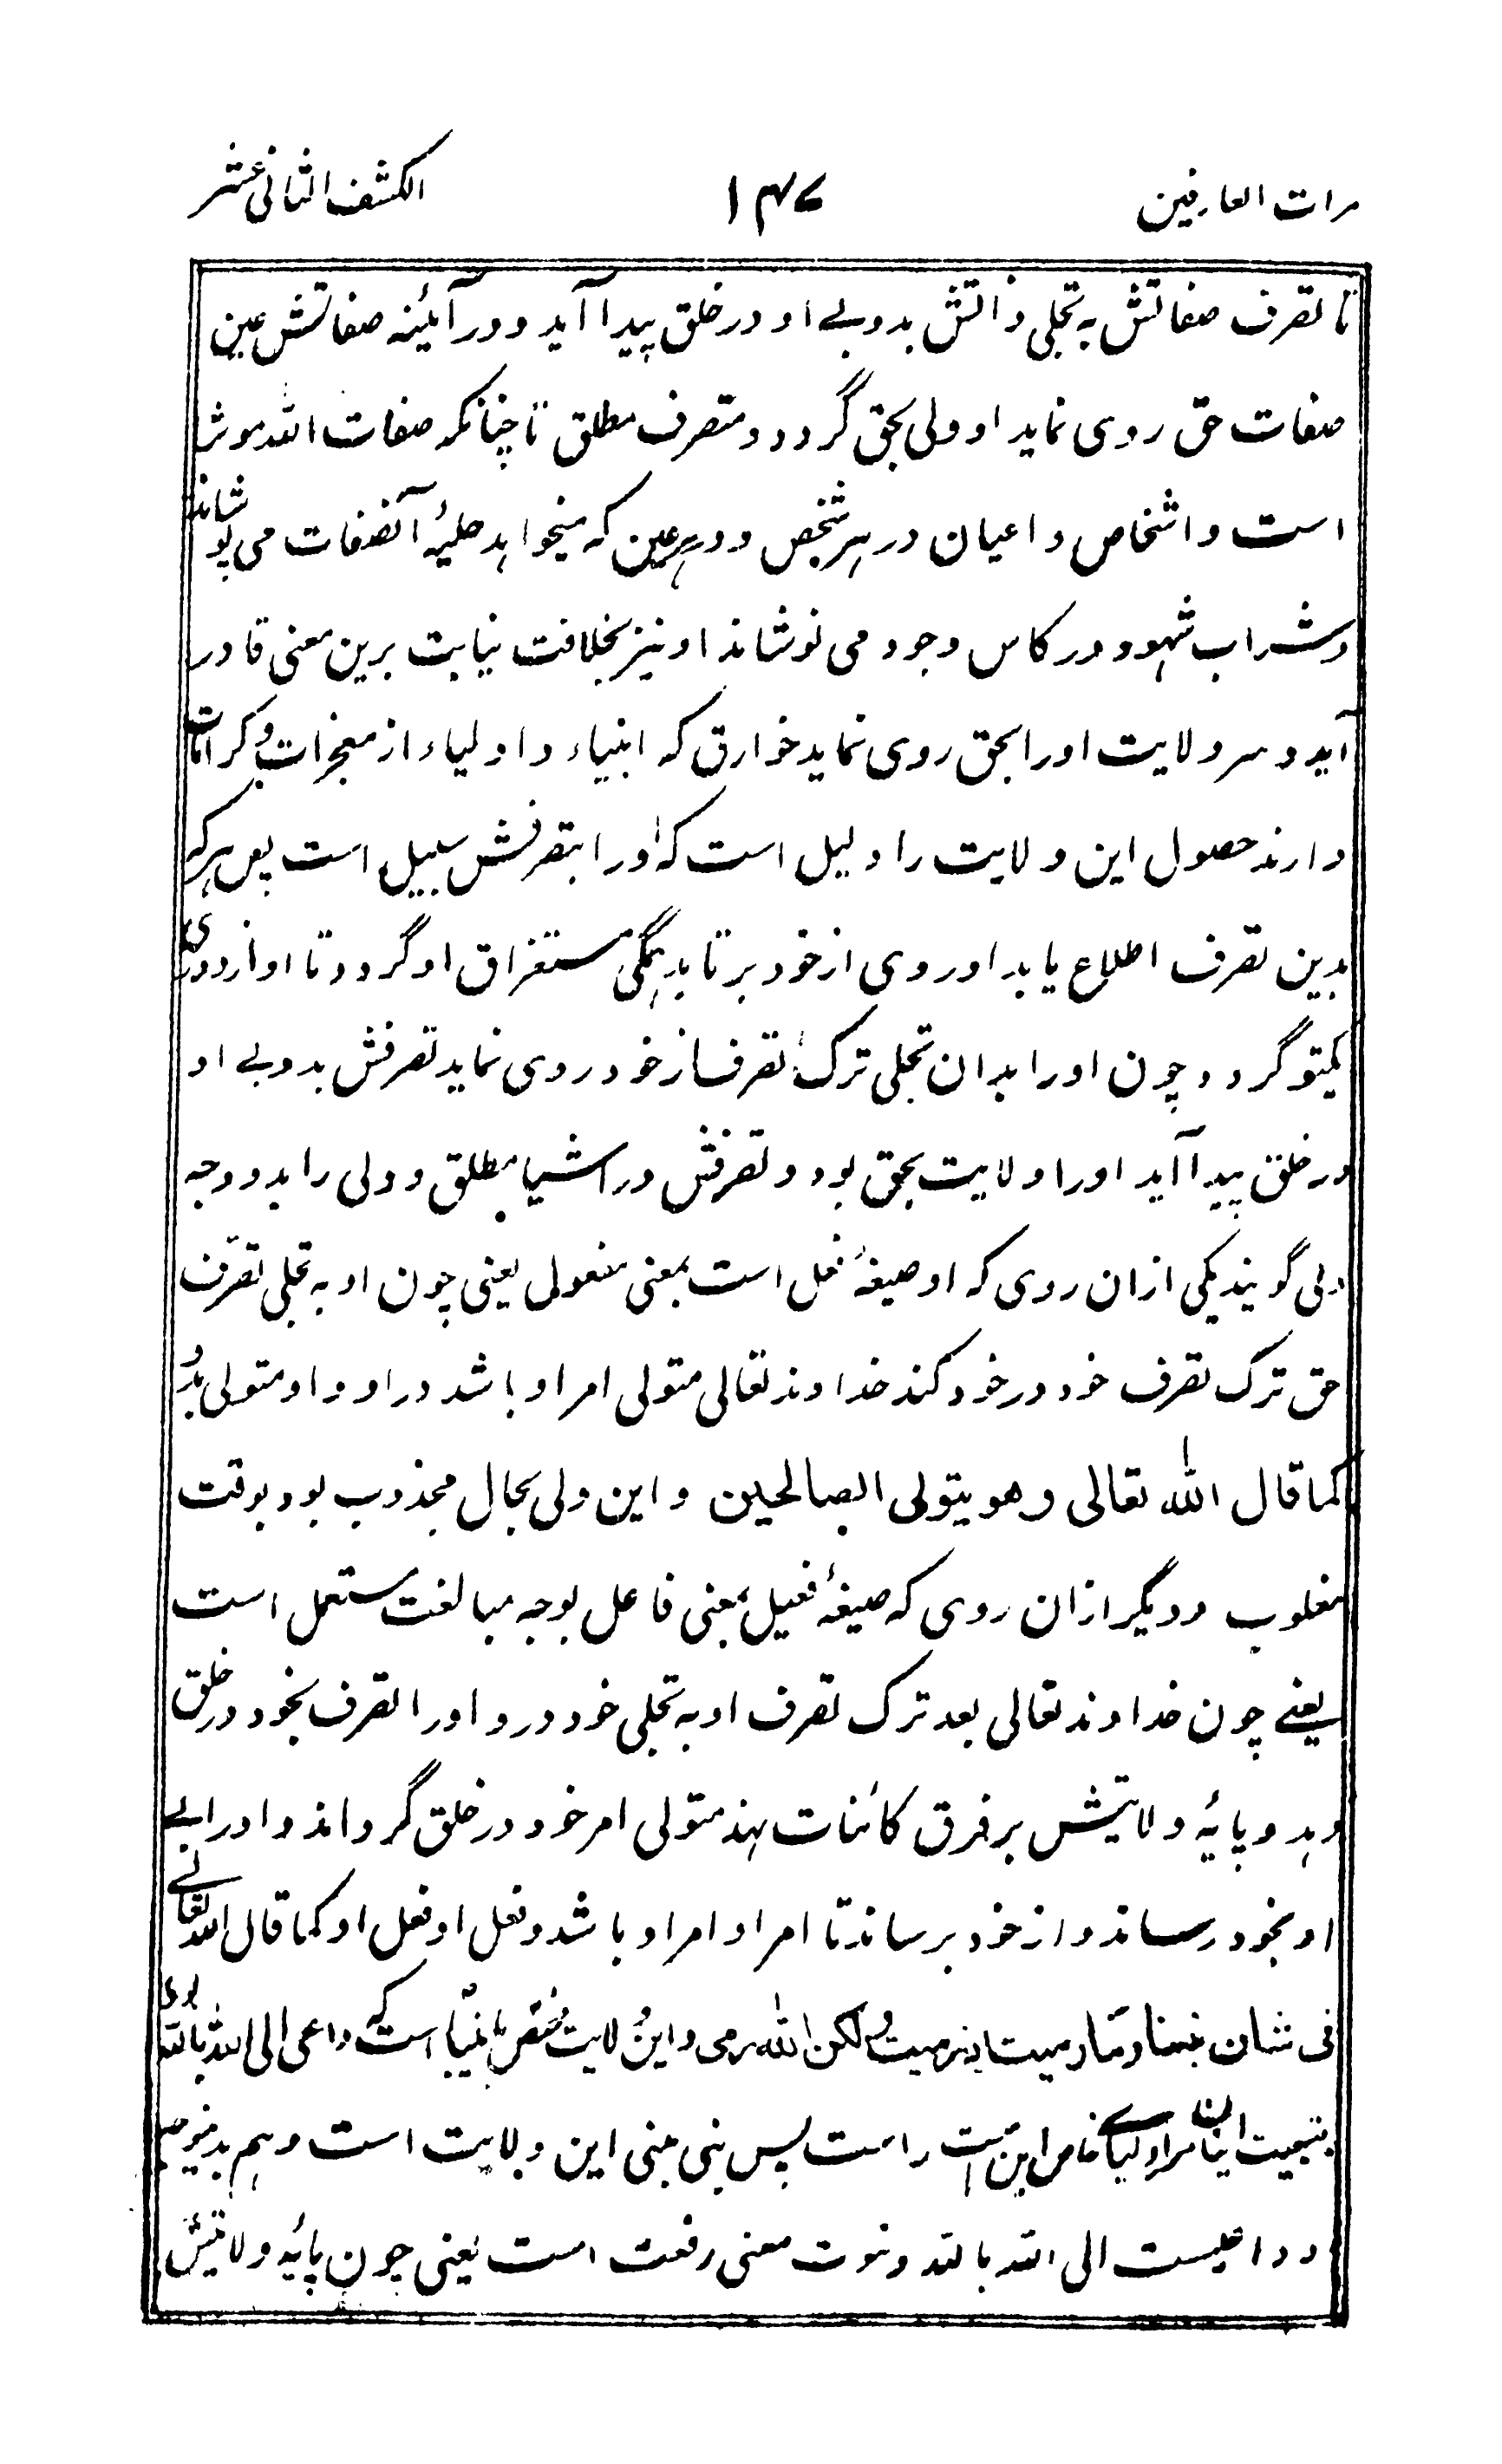 مرات العارفین ۱۴۷ الکشف الثانی عشر
تا تصرف صفاتش به تجلی ذاتش بدو بے او در خلق پیدا آید و در آئینه صفاتش عین
صفات حق روی نماید او ولی بحق گردد و متصرف مطلق تا چنانکه صفات الله موثر
است و اشخاص و اعیان در هر شخص و در هر عین که میخواهد حلیهٔ آنصفات می پوشاند
و شراب شهود در کاس وجود می نوشاند او نیز بخلافت نیابت برین معنی قادر
آید و سر ولایت اورا بحق روی نماید خوارق که انبیاء و اولیاء از معجزات و کرامات
دارند حصول این ولایت را دلیل است که اورا بتصرفش سبیل است پس هر که
بدین تصرف اطلاع یابد او روی از خود برتابد بهمگی مستغراق او گردد تا او از دوری
یکتو گردد چون اورا بدان تجلی ترک تصرف از خود روی نماید تصرفش بدو بے او
در خلق پیدا آید اورا ولایت بحق بود و تصرفش در اشیا مطلق و ولی را بدو وجه
ولی گویند یکی ازان روی که او صیغهٔ فعل است بمعنی مفعول یعنی چون او به تجلی تصرّف
حق ترک تصرف خود در خود کند خداوند تعالی متولی امر او باشد در او و او متولی بدو
کما قال الله تعالی وهو یتولی الصالحین و این ولی بحال مجذوب بود بوقت
مغلوب و دیگر ازان روی که صیغهٔ فعیل بمعنی فاعل بوجه مبالغت مستعمل است
یعنے چون خداوند تعالی بعد ترک تصرف او به تجلی خود درو اورا تصرف بخود در خلق
دهد و پایهٔ ولایتش بر فرق کائنات نهد متولی امر خود در خلق گرداند و اورا بے
او بخود رساند و از خود برساند تا امر او امر او باشد و فعل او فعل او کما قال الله تعالے
فی شان نبینا وما رمیت اذ رمیت ولکن الله رمی و این ولایت مختص بانبیا است که داعی الی الله بالله بودی
بتبعیت ایشان مراولیائے خاص این امت راست پس نبی مبنی این ولایت است و هم بد
و داعیست الی الله بالله و نبوت معنی رفعت است یعنی چون پایهٔ ولایتش